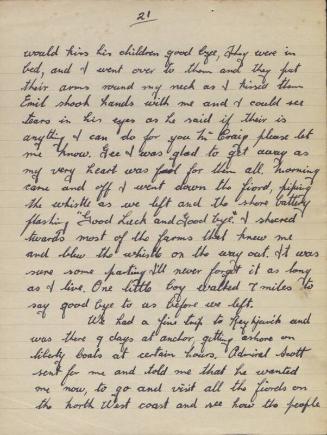 21
would kiss his children good bye, they were in
bed, and I went over to them and they put
their arms round my neck as I kissed them
Emil shook hands with me and I could see
tears in his eyes as he said if their is
anything I can do for you Mr Craig please let
me know. Gee I was glad to get away as
my very heart was full for them all. Morning
came and off I went down the fiord, piping
the whistle as we left and the shore battery
flashing "Good Luck and Good bye". I sheered
towards most of the farms that knew me
and blew the whistle on the way out. It was
sure some parting I'll never forget it as long
as I live. One little boy walked 7 miles to
say good bye to us before we left.
We had a fine trip to Reykjavik and
was there 9 days at anchor, getting ashore on
liberty boats at certain hours. Admiral Scott
sent for me and told me that he wanted
me now, to go and visit all the fiords on
the north West coast and see how the people